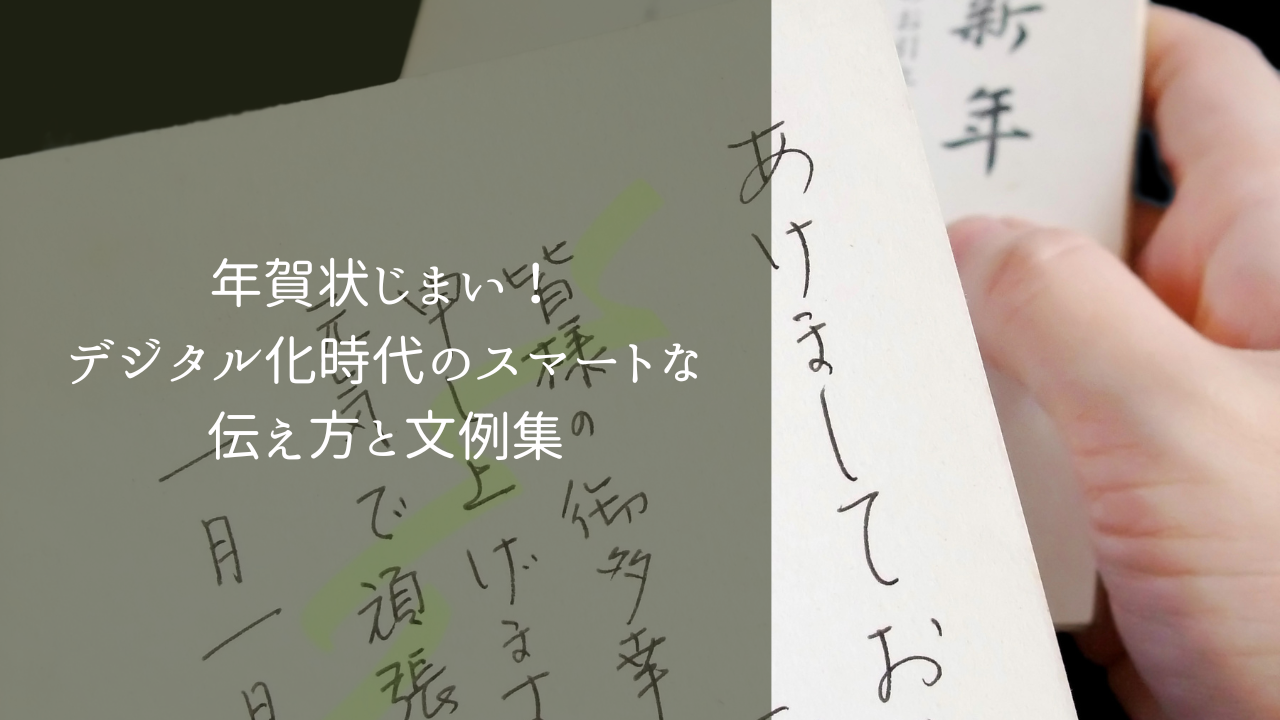 年賀状じまい！
デジタル化時代のスマートな
伝え方と文例集
新年
あけましてお
皆様の御多幸
申し上げます
元気で頑張
一月一日